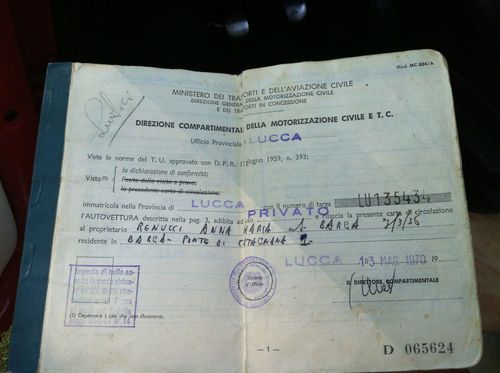 Mod. MC 804/A
MINISTERO DEI TRASPORTI E DELL'AVIAZIONE CIVILE
DIREZIONE GENERALE DELLA MOTORIZZAZIONE CIVILE
E DEI TRASPORTI IN CONCESSIONE
DIREZIONE COMPARTIMENTALE DELLA MOTORIZZAZIONE CIVILE E T. C.
Ufficio Provinciale LUCCA
Viste le norme del T. U. approvato con D. P. R. giugno 1959, n. 393;
la dichiarazione di conformità;
Visto (1) l'esito della visita e prova;
la precedente carta di circolazione;
immatricola nella Provincia di LUCCA con il numero di targa LU135434
l'AUTOVETTURA descritta nella pag. 3, adibita ad uso PRIVATO e rilascia la presente carta di circolazione
al proprietario RENUCCI ANNA MARIA BARGA 7/3/36
residente in BARGA - PONTE DI
LUCCA 13 MAR 1970 19
IL DIRETTORE COMPARTIMENTALE
Timbro
d'Ufficio
Imposta di bollo
(1) Cancellare i casi che non ricorrono.
— 1 —
D 065624